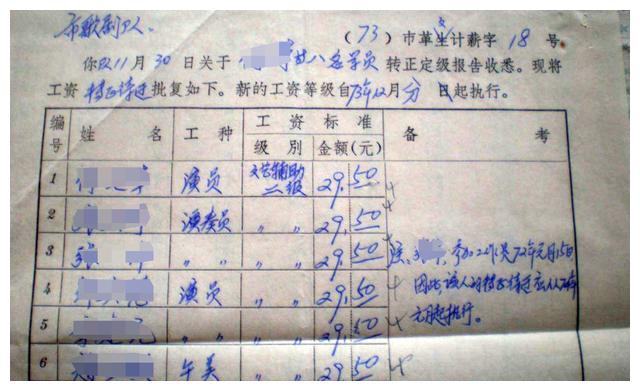 市歌剧院
(73)市革生计薪字 18 号
你以11月30日关于 等八名学员转正定级报告收悉。现将
工资转正待遇批复如下。新的工资等级自73年12月份起执行。
编号 姓名 工种 工资标准 备考
级别 金额(元)
1 演员 文艺辅助二级 29.50
2 演奏员 〃 〃 29.50
3 张 〃 〃 〃 〃 29.50 注: 参加工作是72年元月15日
4 演员 〃 〃 29.50 因此该人的转正待遇应从74年
5 〃 〃 〃 〃 29.50 元月起执行。
6 午美 〃 〃 29.50